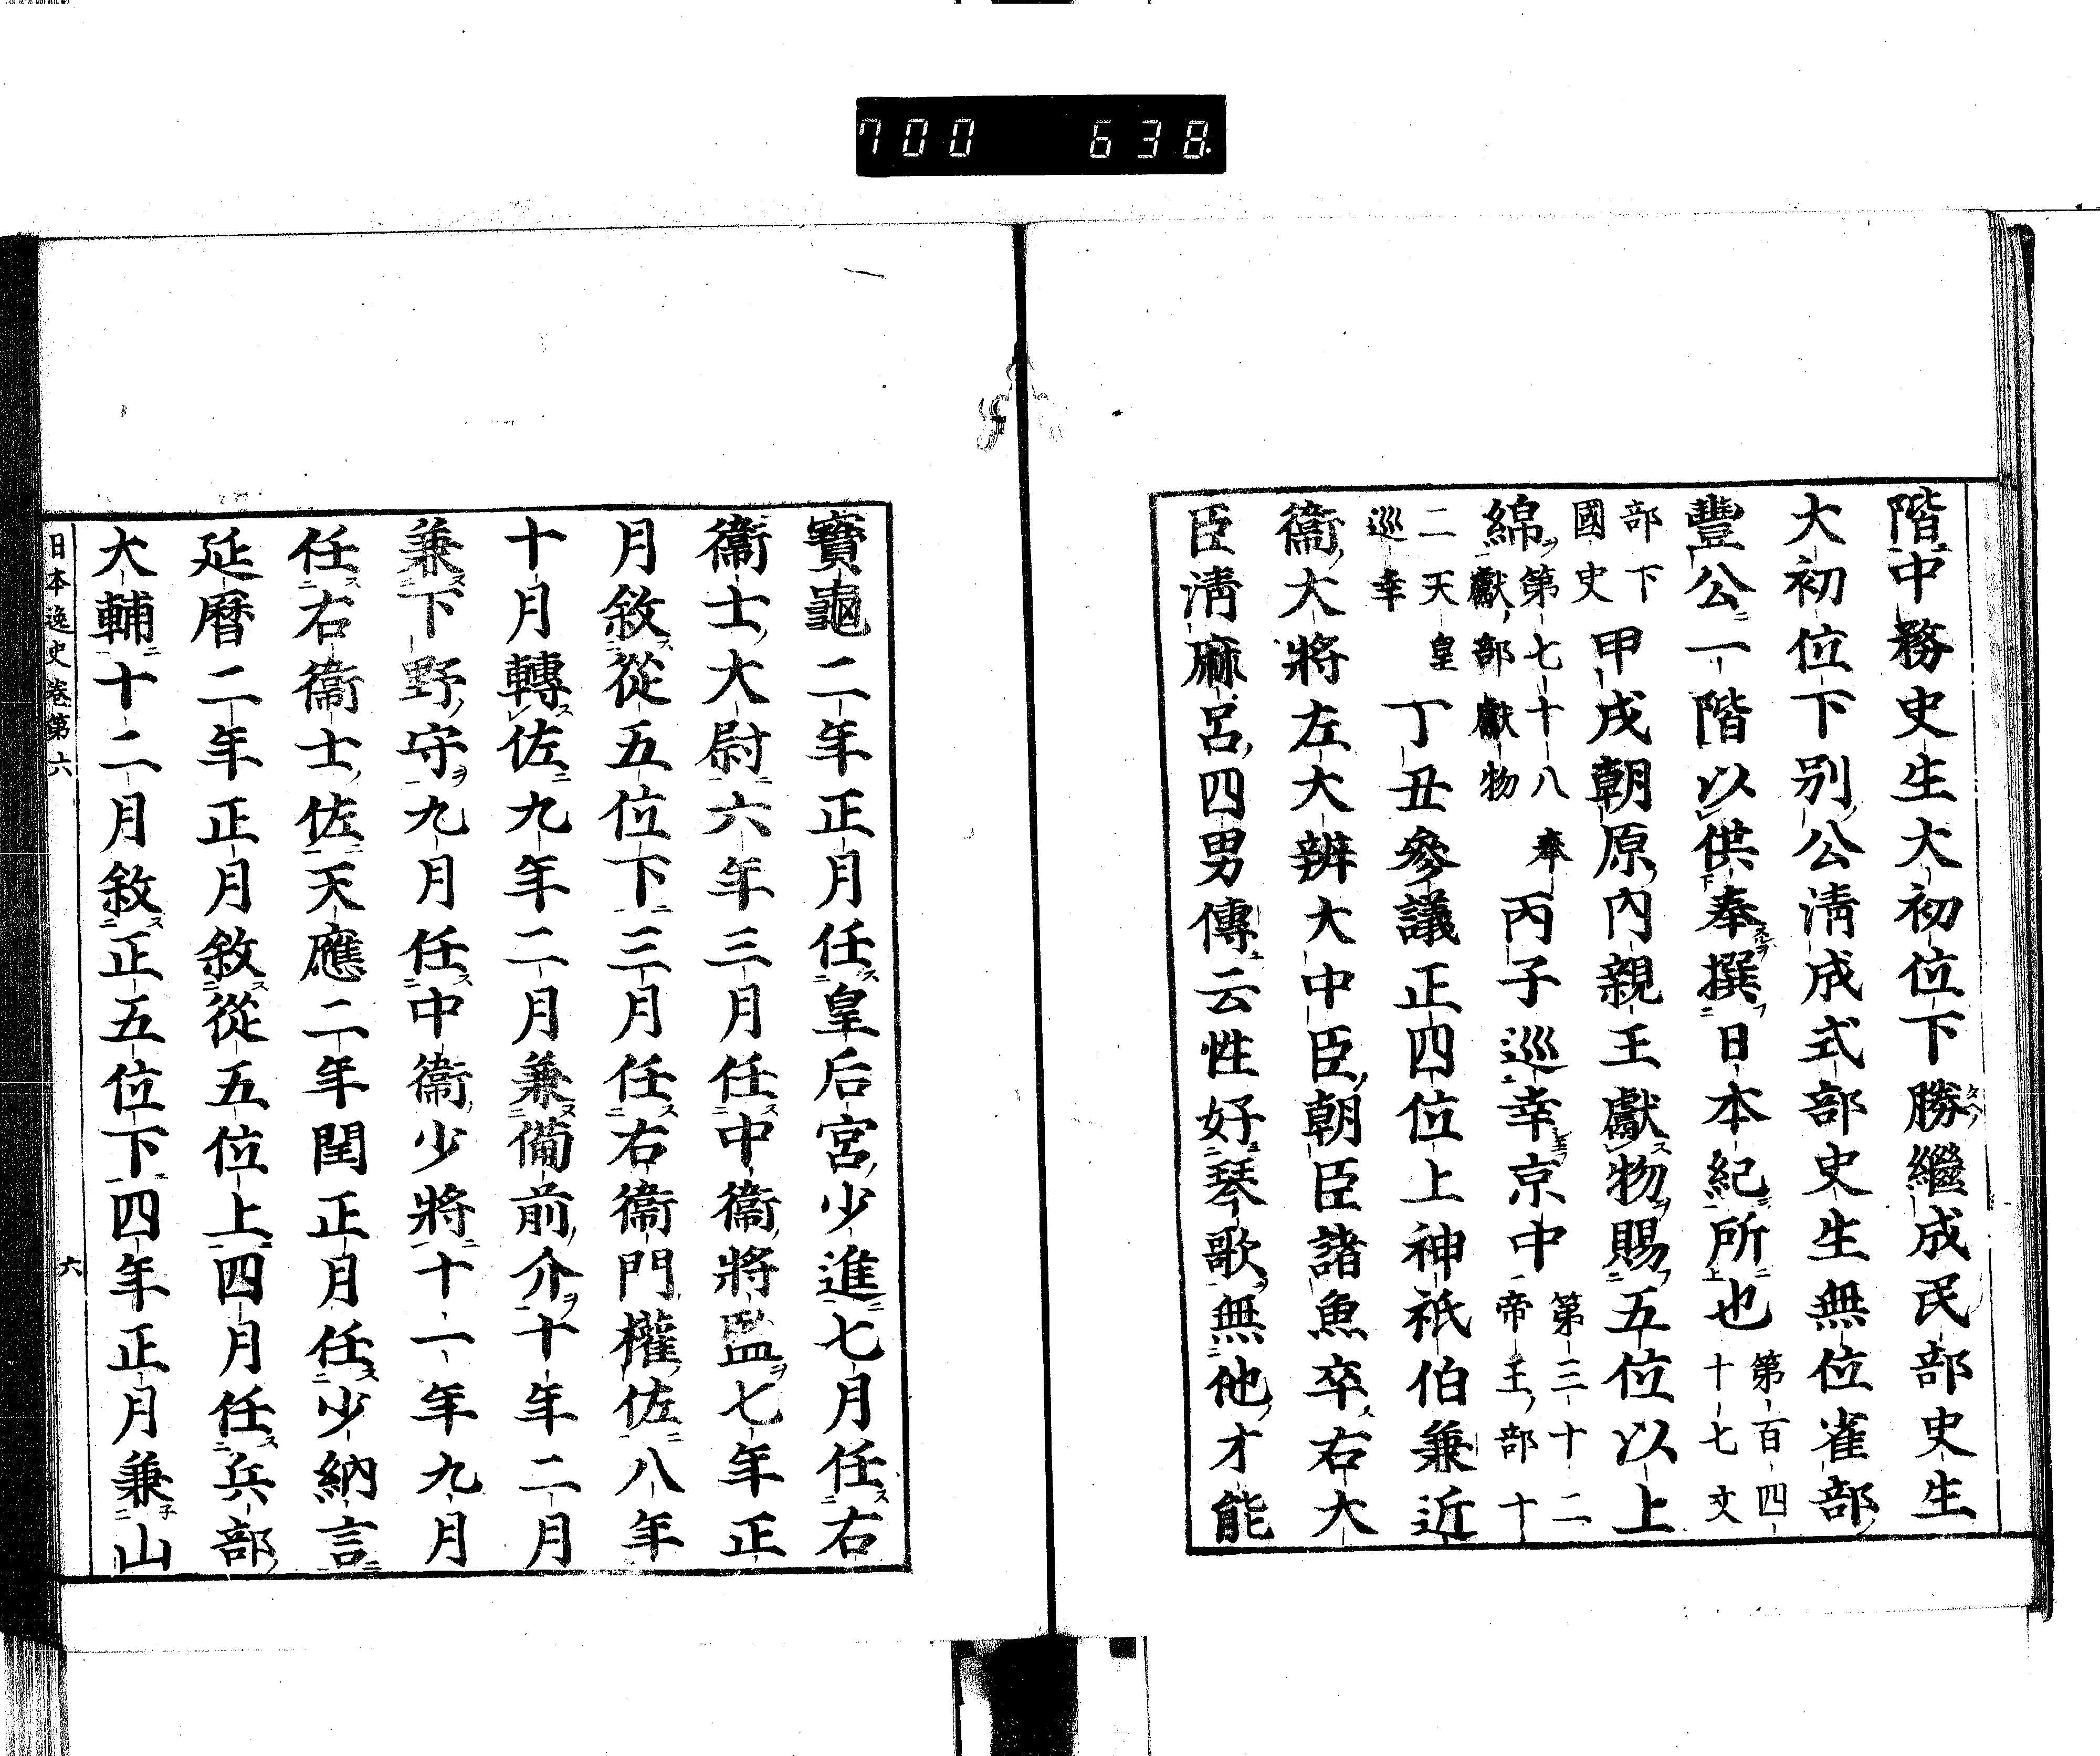 700 638
階中務史生大初位下勝繼成民部史生
大初位下別公淸成式部史生無位雀部
豐公一階以供奉撰日本紀所也第百四十七文
部下國史甲戌朝原內親王獻物賜五位以上
綿第七十八奉獻部獻物丙子巡幸京中第三十二帝王部十
二天皇巡幸丁丑參議正四位上神祇伯兼近
衞大將左大辨大中臣朝臣諸魚卒右大
臣淸麻呂四男傳云性好琴歌無他才能
寶龜二年正月任皇后宮少進七月任右
衞士大尉六年三月任中衞將監七年正
月敘從五位下三月任右衞門權佐八年
十月轉佐九年二月兼備前介十年二月
兼下野守九月任中衞少將十一年九月
任右衞士佐天應二年閏正月任少納言
延曆二年正月敘從五位上四月任兵部
大輔十二月敘正五位下四年正月兼山
日本逸史卷第六 六